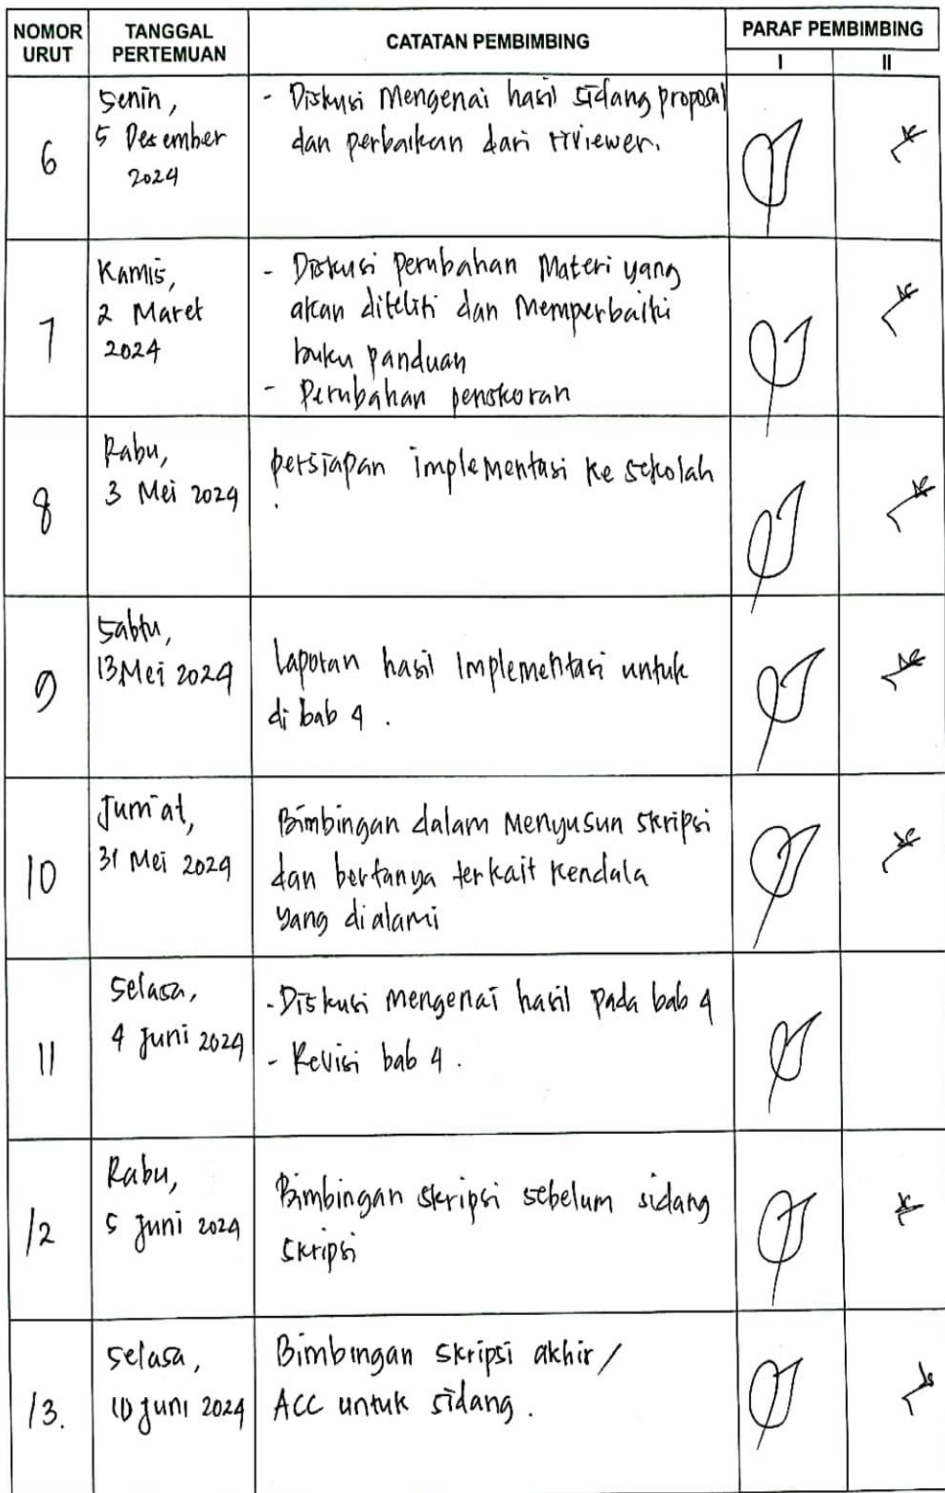 NOMOR URUT
TANGGAL PERTEMUAN
CATATAN PEMBIMBING
PARAF PEMBIMBING
I
II
6
Senin,
5 Desember
2024
- Diskusi Mengenai hasil sidang proposal
dan perbaikan dari riviewer.
7
Kamis,
2 Maret
2024
- Diskusi perubahan Materi yang
akan diteliti dan Memperbaiki
buku panduan
- Perubahan penskoran
8
Rabu,
3 Mei 2024
persiapan implementasi ke sekolah
9
Sabtu,
13 Mei 2024
Laporan hasil Implementasi untuk
di bab 4 .
10
Jum'at,
31 Mei 2024
Bimbingan dalam Menyusun skripsi
dan bertanya terkait kendala
yang dialami
11
Selasa,
4 Juni 2024
- Diskusi mengenai hasil pada bab 4
- Revisi bab 4 .
12
Rabu,
5 Juni 2024
Bimbingan skripsi sebelum sidang
skripsi
13.
Selasa,
10 Juni 2024
Bimbingan skripsi akhir /
ACC untuk sidang .